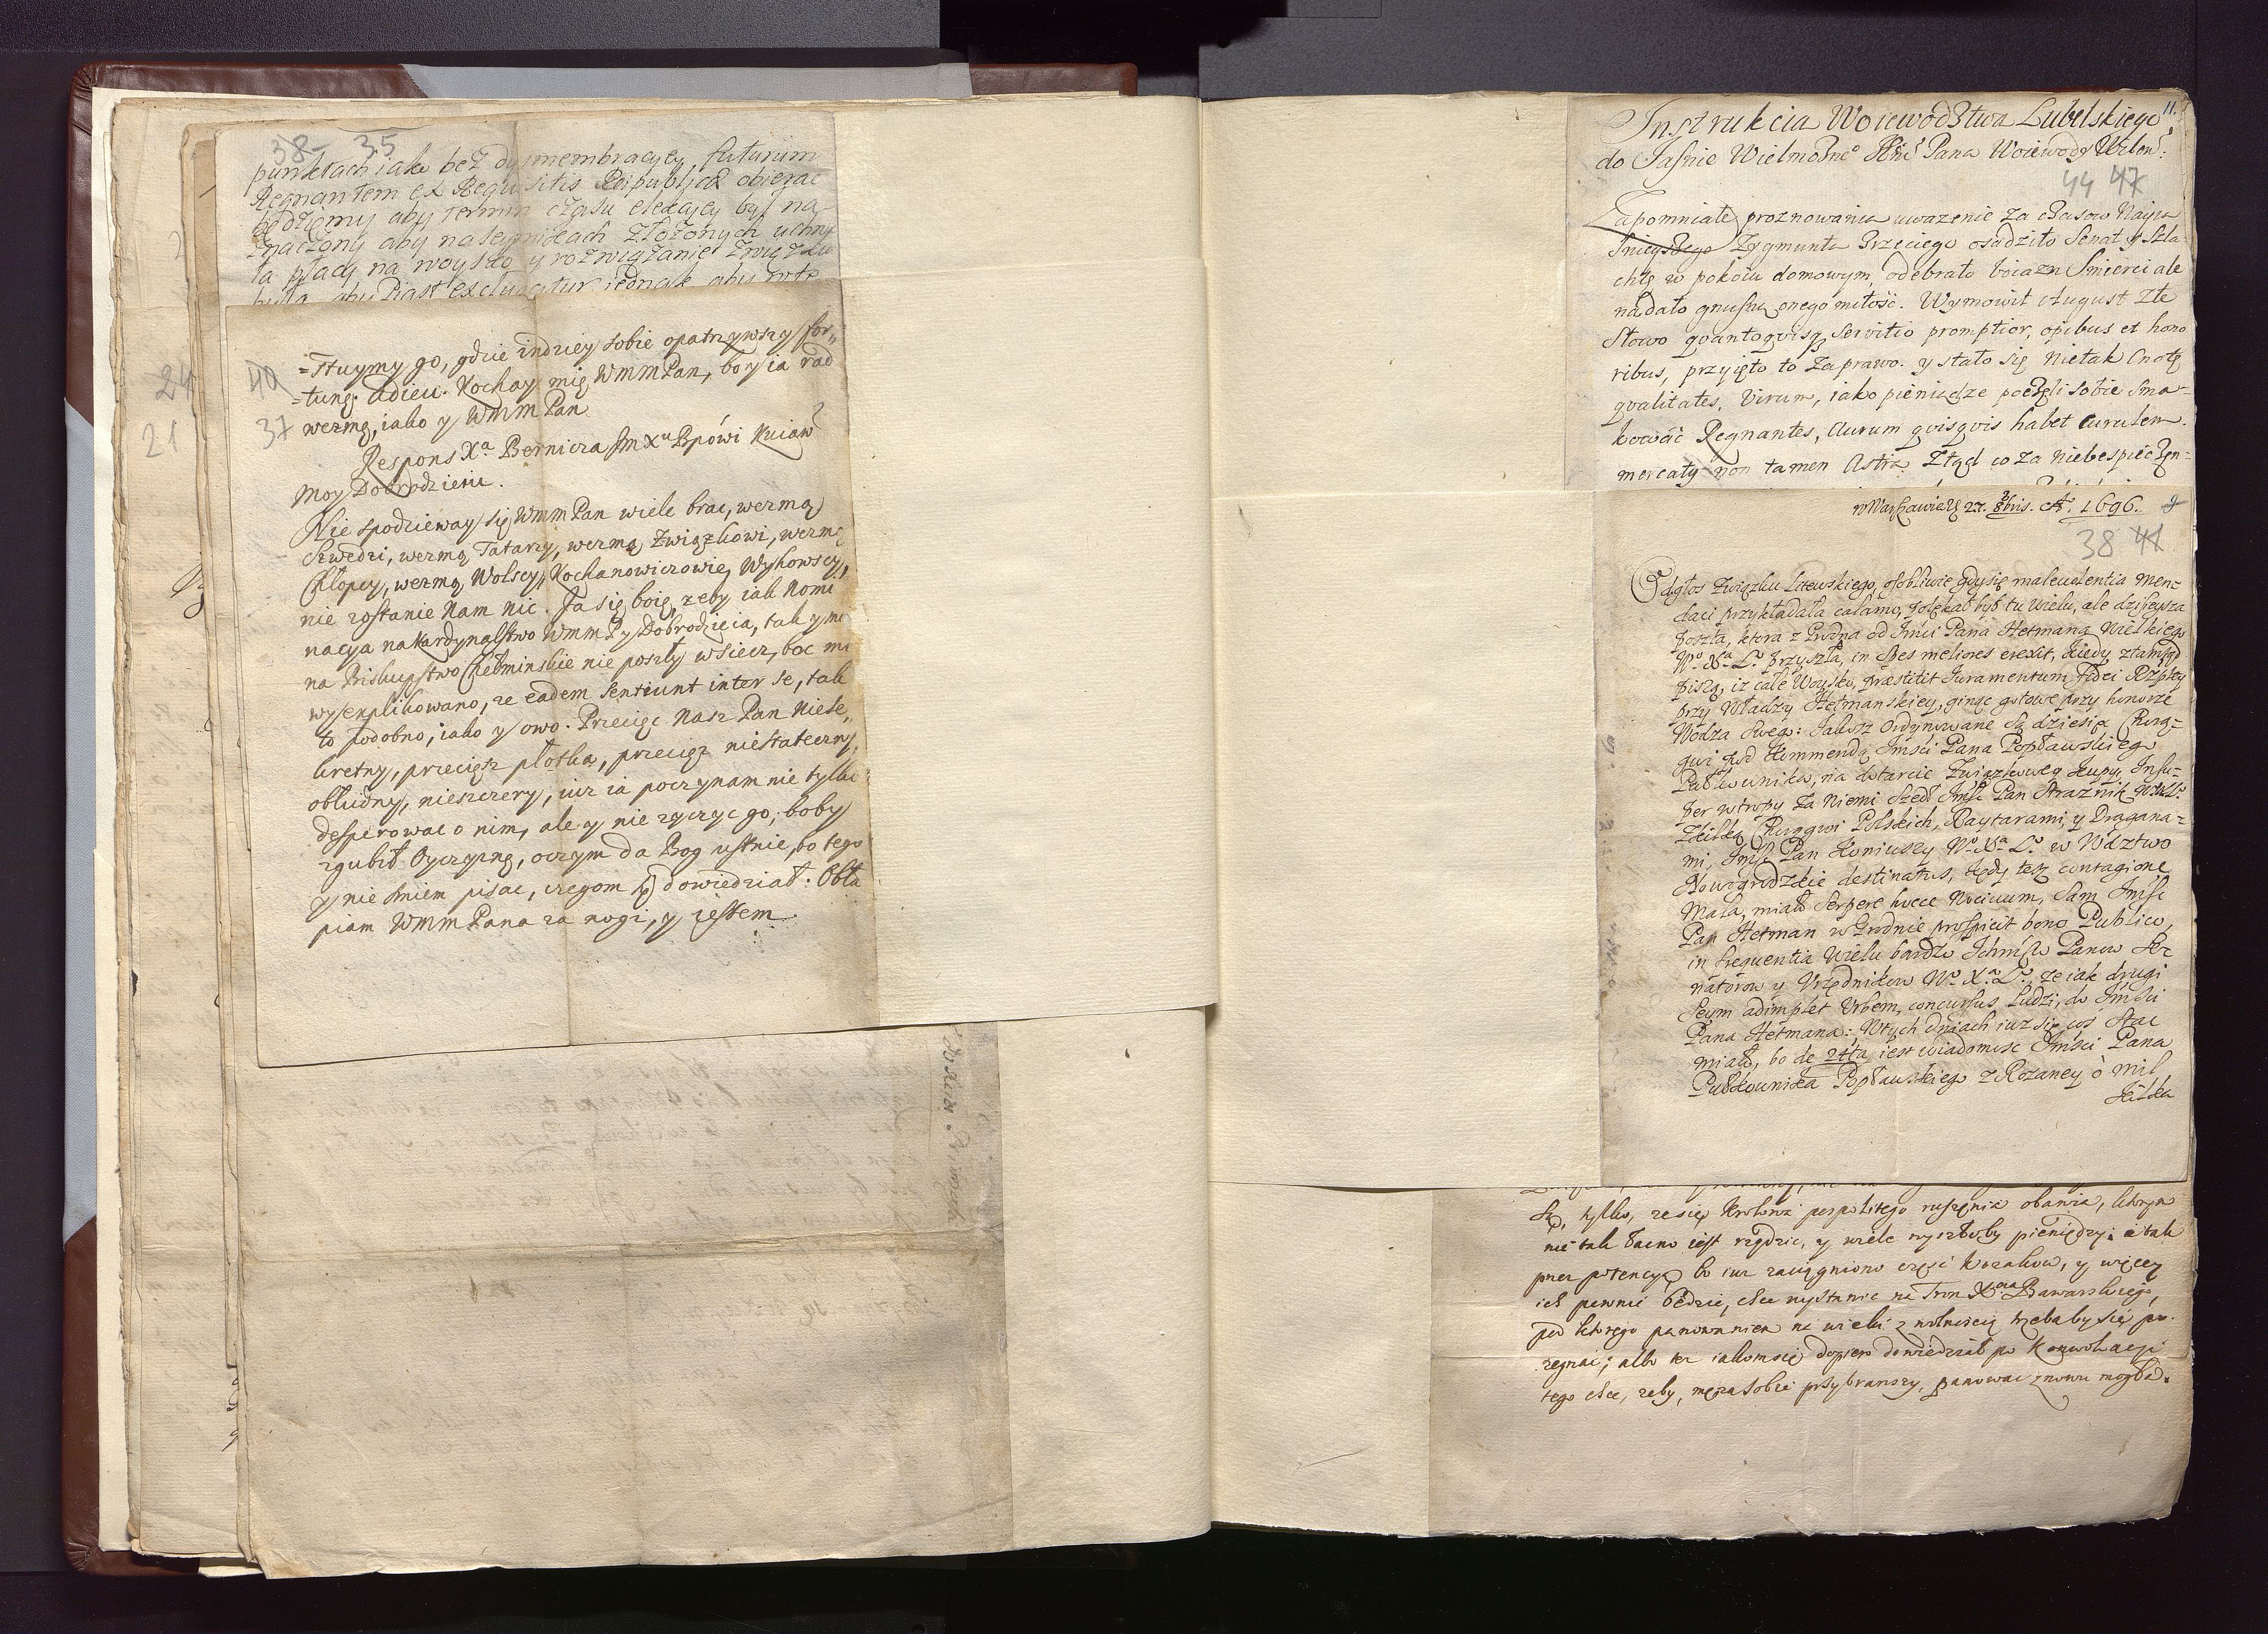 38 35
punktach iako bez dysmembracyey, futurum
Regnantem ex Requisitis Reipublicæ obierac
będziemy aby termin czasu elekcyey był na-
znaczony aby na seymikach złożonych uchwa
ła płacy na woysko y rozwiązanie związku
była, aby Piast excludatur jednak aby
40
37
24
21
=stuymy go, gdzie indziey sobie opatrzywszy for„
=tunę. Adieu. Kochay mię WmmPan, bo y ia rad
wezmę, iako y WmmPan
Respons Xa Bernicza Jm Xu Bpówi Kuiaw
Moy Dobrodzieiu.
Nie spodzieway się WmmPan wiele brac, wezmą
Szwedzi, wezmą Tatarzy, wezmą Związkowi, wezmą
Chłopcy, wezmą Wolscy, Kochanowiczowie, Wyhowscy,
nie zostanie Nam nic. Ja się boię, zeby iak Nomi
nacya na Kardynalstwo WmmP y Dobrodzieia, tak y mo
na Biskupstwo Chełminskie nie poszły wsiecz, boc mi
wyexplikowano, ze eadem sentiunt inter se, tak
to podobno, iako y owo. Przecięc Nasz Pan Niese„
kretny, przecięsz plotka, przecięz niestateczny,
obłudny, nieszczery, iuz ia poczynam nie tylko
desperowac o nim, ale y nie zyczyc go, boby
zgubił Oyczyznę, oczym da Bog ustnie, bo tego
y nie smiem pisac, czegom się dowiedział. Obła
piam WmmPana za nogi, y iestem
Instrukcia Woiewodztwa Lubelskiego 11.
do Jaśnie Wielmożneo Jmci Pana Woiewody Wilen:
44 47
Zapomniałe proznowania uwazenie za czasow Nayia
śnieyszego Zygmunta Trzeciego osadziło Senat y Szla
chtę w pokoiu domowym, odebrało boiazn Smierci ale
nadało gnusnegonego miłość. Wymowił August złe
Słowo quanto quisq servitio promptior, opibus et hono
ribus, przyięto to za prawo. y stało się nie tak Cnotę
qualitates, Virum, iako pieniądze poczęli sobie sma-
kowáć Regnantes, Aurum quisquis habet curulem.
mercaty non tamen Astra Ztąd co za niebespieczen=
w Warszawie 27. 8bris. Ao. 1696.
38 41
Odgłos Związku Litewskiego, osobliwie gdy się malevolentia men=
daci przykładała calamo, zolękał był tu wielu, ale dzisieysza
poszta, ktora z Grodna od Jmści Pana Hetmana Wielkiego
Wo Xa Lo przyszła, in spes meliores erexit, kiedy ztamtąd
piszą, iz całe Woysko, præstitit Juramentum Fidei Rzptey
przy Władzy Hetmanskiey, ginąc gotowe przy honorze
Wodza swego: Jakosz Ordynowane są dziesię Chorą=
gwi pod Kommendą Jmści Pana Popławskiego
Pułkownika, na dotarcie Związkowey kupy, Insu=
per w tropy za Niemi szedł Jmść Pan Straznik WXL
z kilką Chorągwi Polskich, Raytarami, y Dragana=
mi, Jmść Pan Koniuszy Wo Xa Lo w Wdztwo
Nowogrodzkie destinatus, kędy tesz contagione
Mala, miało serpere hocce Nocivum, sam Jmść
Pan Hetman w Grodnie prospicit bono Publico,
in frequentia wielu bardzo Ichmściw Panow Se
natorow y Urzędnikow Wo Xa Lo, ze iak drugi
Seym adimplet Urbem, concursus ludzi, do Jmści
Pana Hetmana: w tych dniach iuz się coś stac
miało, bo de 24ta iest wiadomosc Jmści Pana
Pułkownika Popławskiego z Rozaney ò mil
kilka
się, tylko, ze się Krolowa pospolitego ruszenia obawia, ktorym
nie tak łacno iest rządzic, y wiele wyszłoby pieniędzy; a tak
przez potencyą bo iuz zaciągniono częsc Kozakow, y więcey
ich pewnie będzie, chce wystawic na Tron Xcia Bawarskiego,
pod ktorego panowaniem na wieki z wolnoscią trzebaby się po-
zegnac; albo tez iakom się dopiero dowiedział po Konwokacyi
tego chce, zeby, męza sobie przybrawszy, panowac znowu mogła.